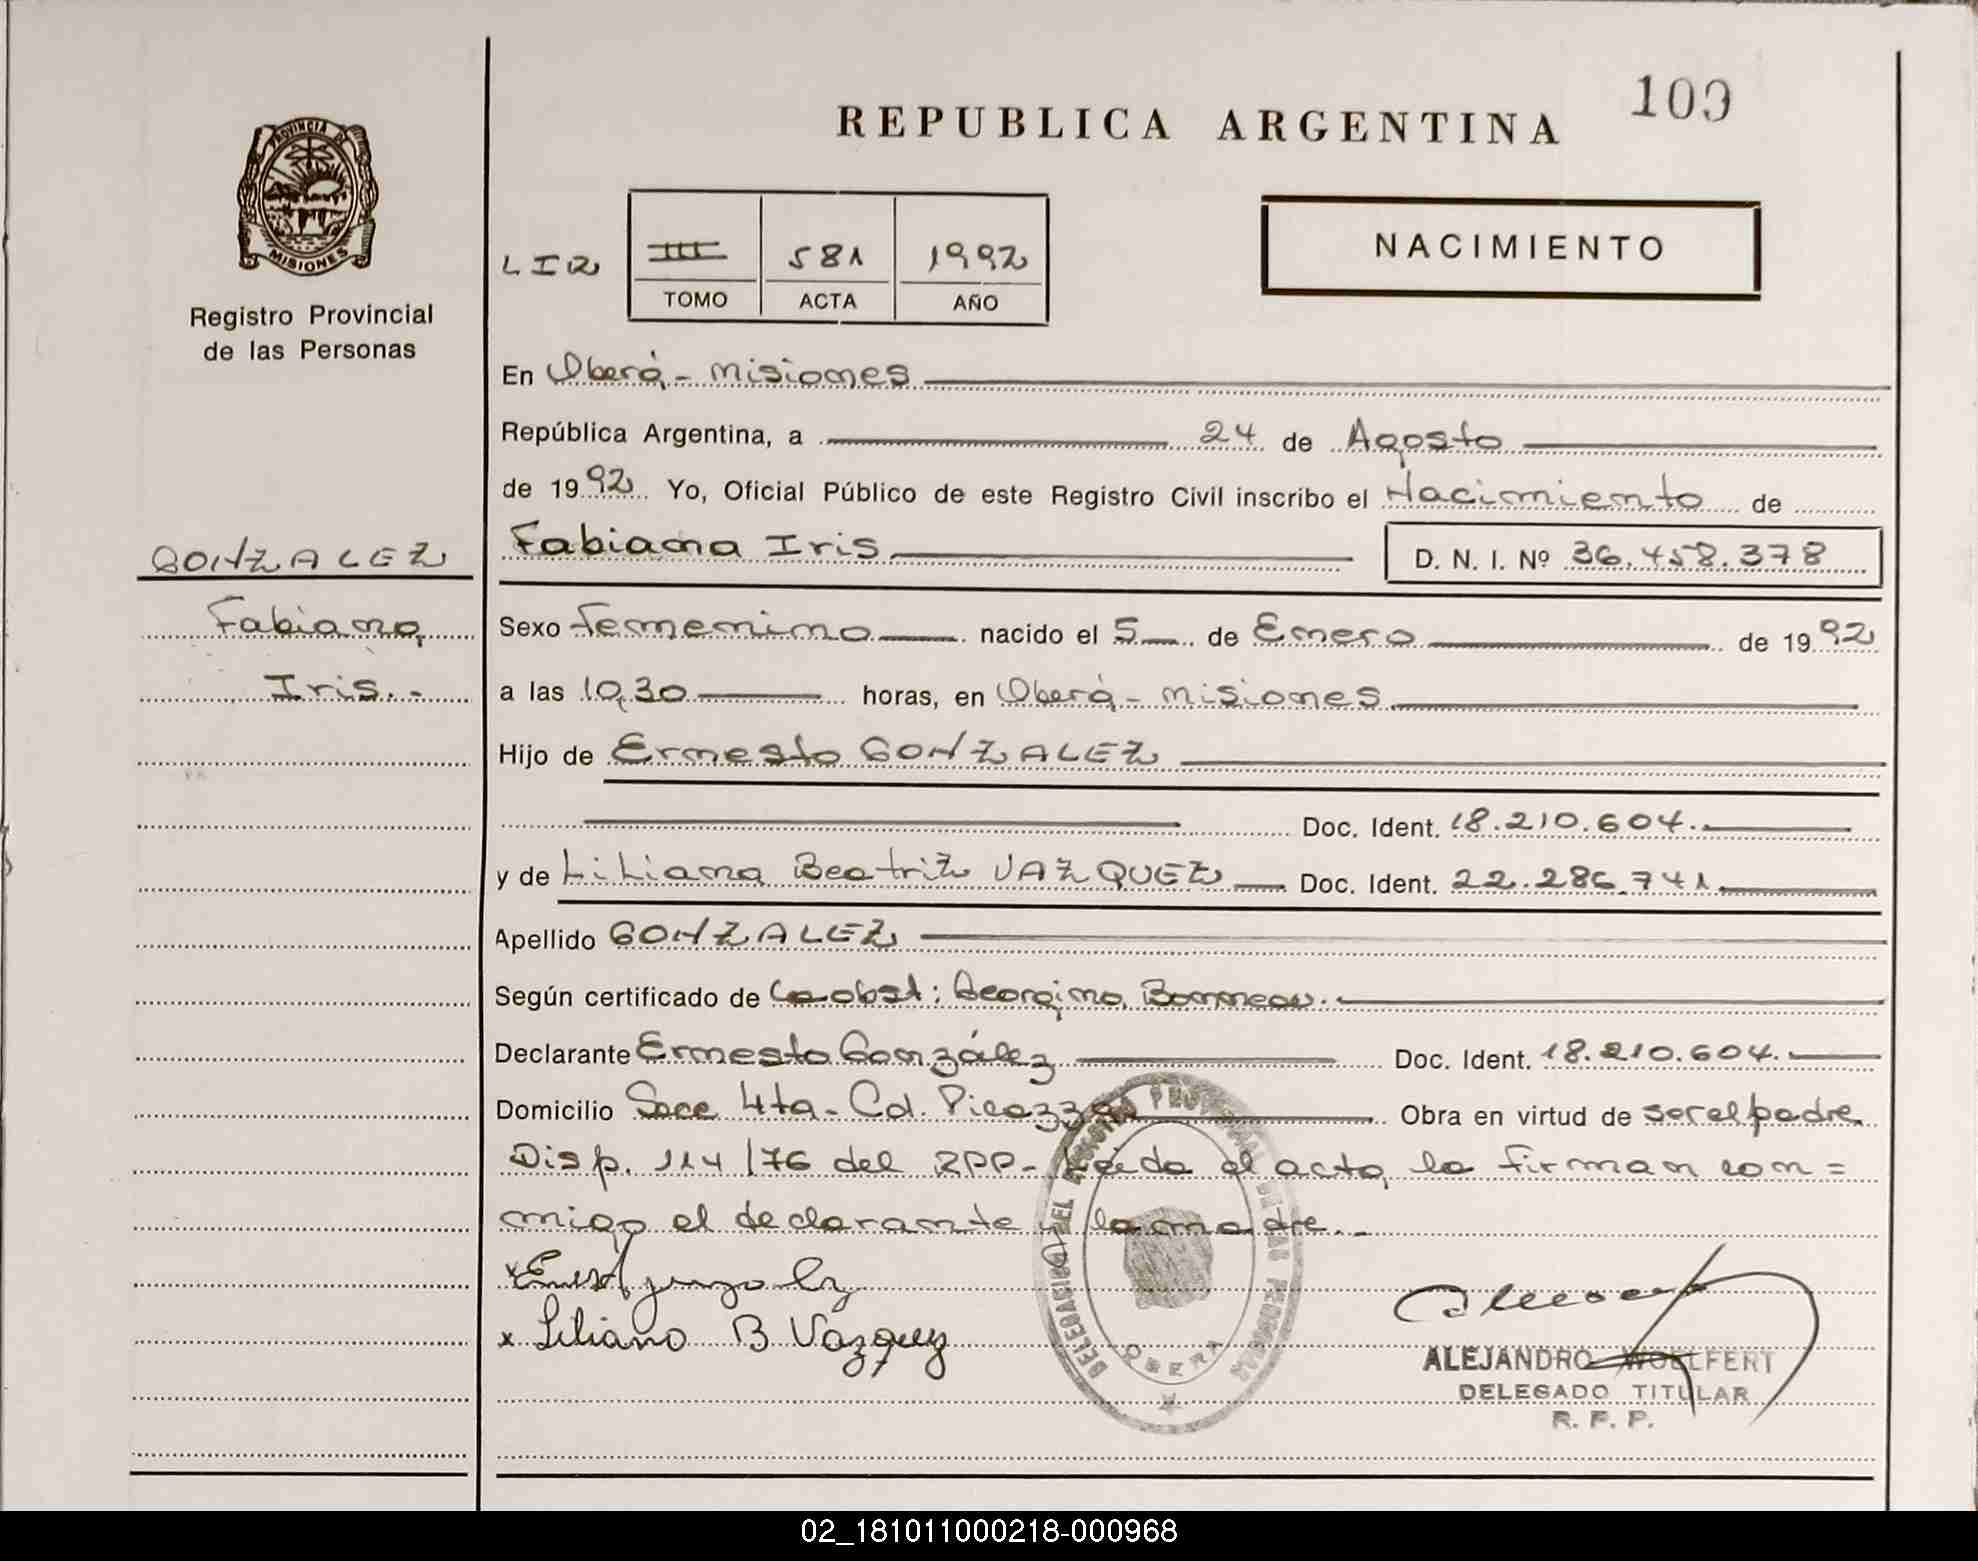 REPUBLICA ARGENTINA
109
PROVINCIA DE
MISIONES
Registro Provincial
de las Personas
LIQ
III 581 1992
TOMO ACTA AÑO
NACIMIENTO
En Oberá - Misiones
República Argentina, a 24 de Agosto
de 1992 Yo, Oficial Público de este Registro Civil inscribo el Nacimiento de
Fabiana Iris D. N. I. Nº 36.458.378
GONZALEZ
Fabiana
Iris.-
Sexo Femenino nacido el 5 de Enero de 1992
a las 10,30 horas, en Oberá - Misiones
Hijo de Ernesto GONZALEZ
Doc. Ident. 18.210.604.
y de Liliana Beatriz VAZQUEZ Doc. Ident. 22.286.741
Apellido GONZALEZ
Según certificado de La obst: Georgina
Declarante Ernesto González Doc. Ident. 18.210.604.
Domicilio Secc 4ta - Cd. Obra en virtud de ser el padre
Disp. 114/76 del RPP- Leída el acta, la firman con=
migo el declarante y la madre.-
x
x Liliana B Vazquez
DELEGACION DEL REGISTRO PROVINCIAL DE LAS PERSONAS
OBERA
ALEJANDRO WOELFERT
DELEGADO TITULAR
R. P. P.
02_181011000218-000968